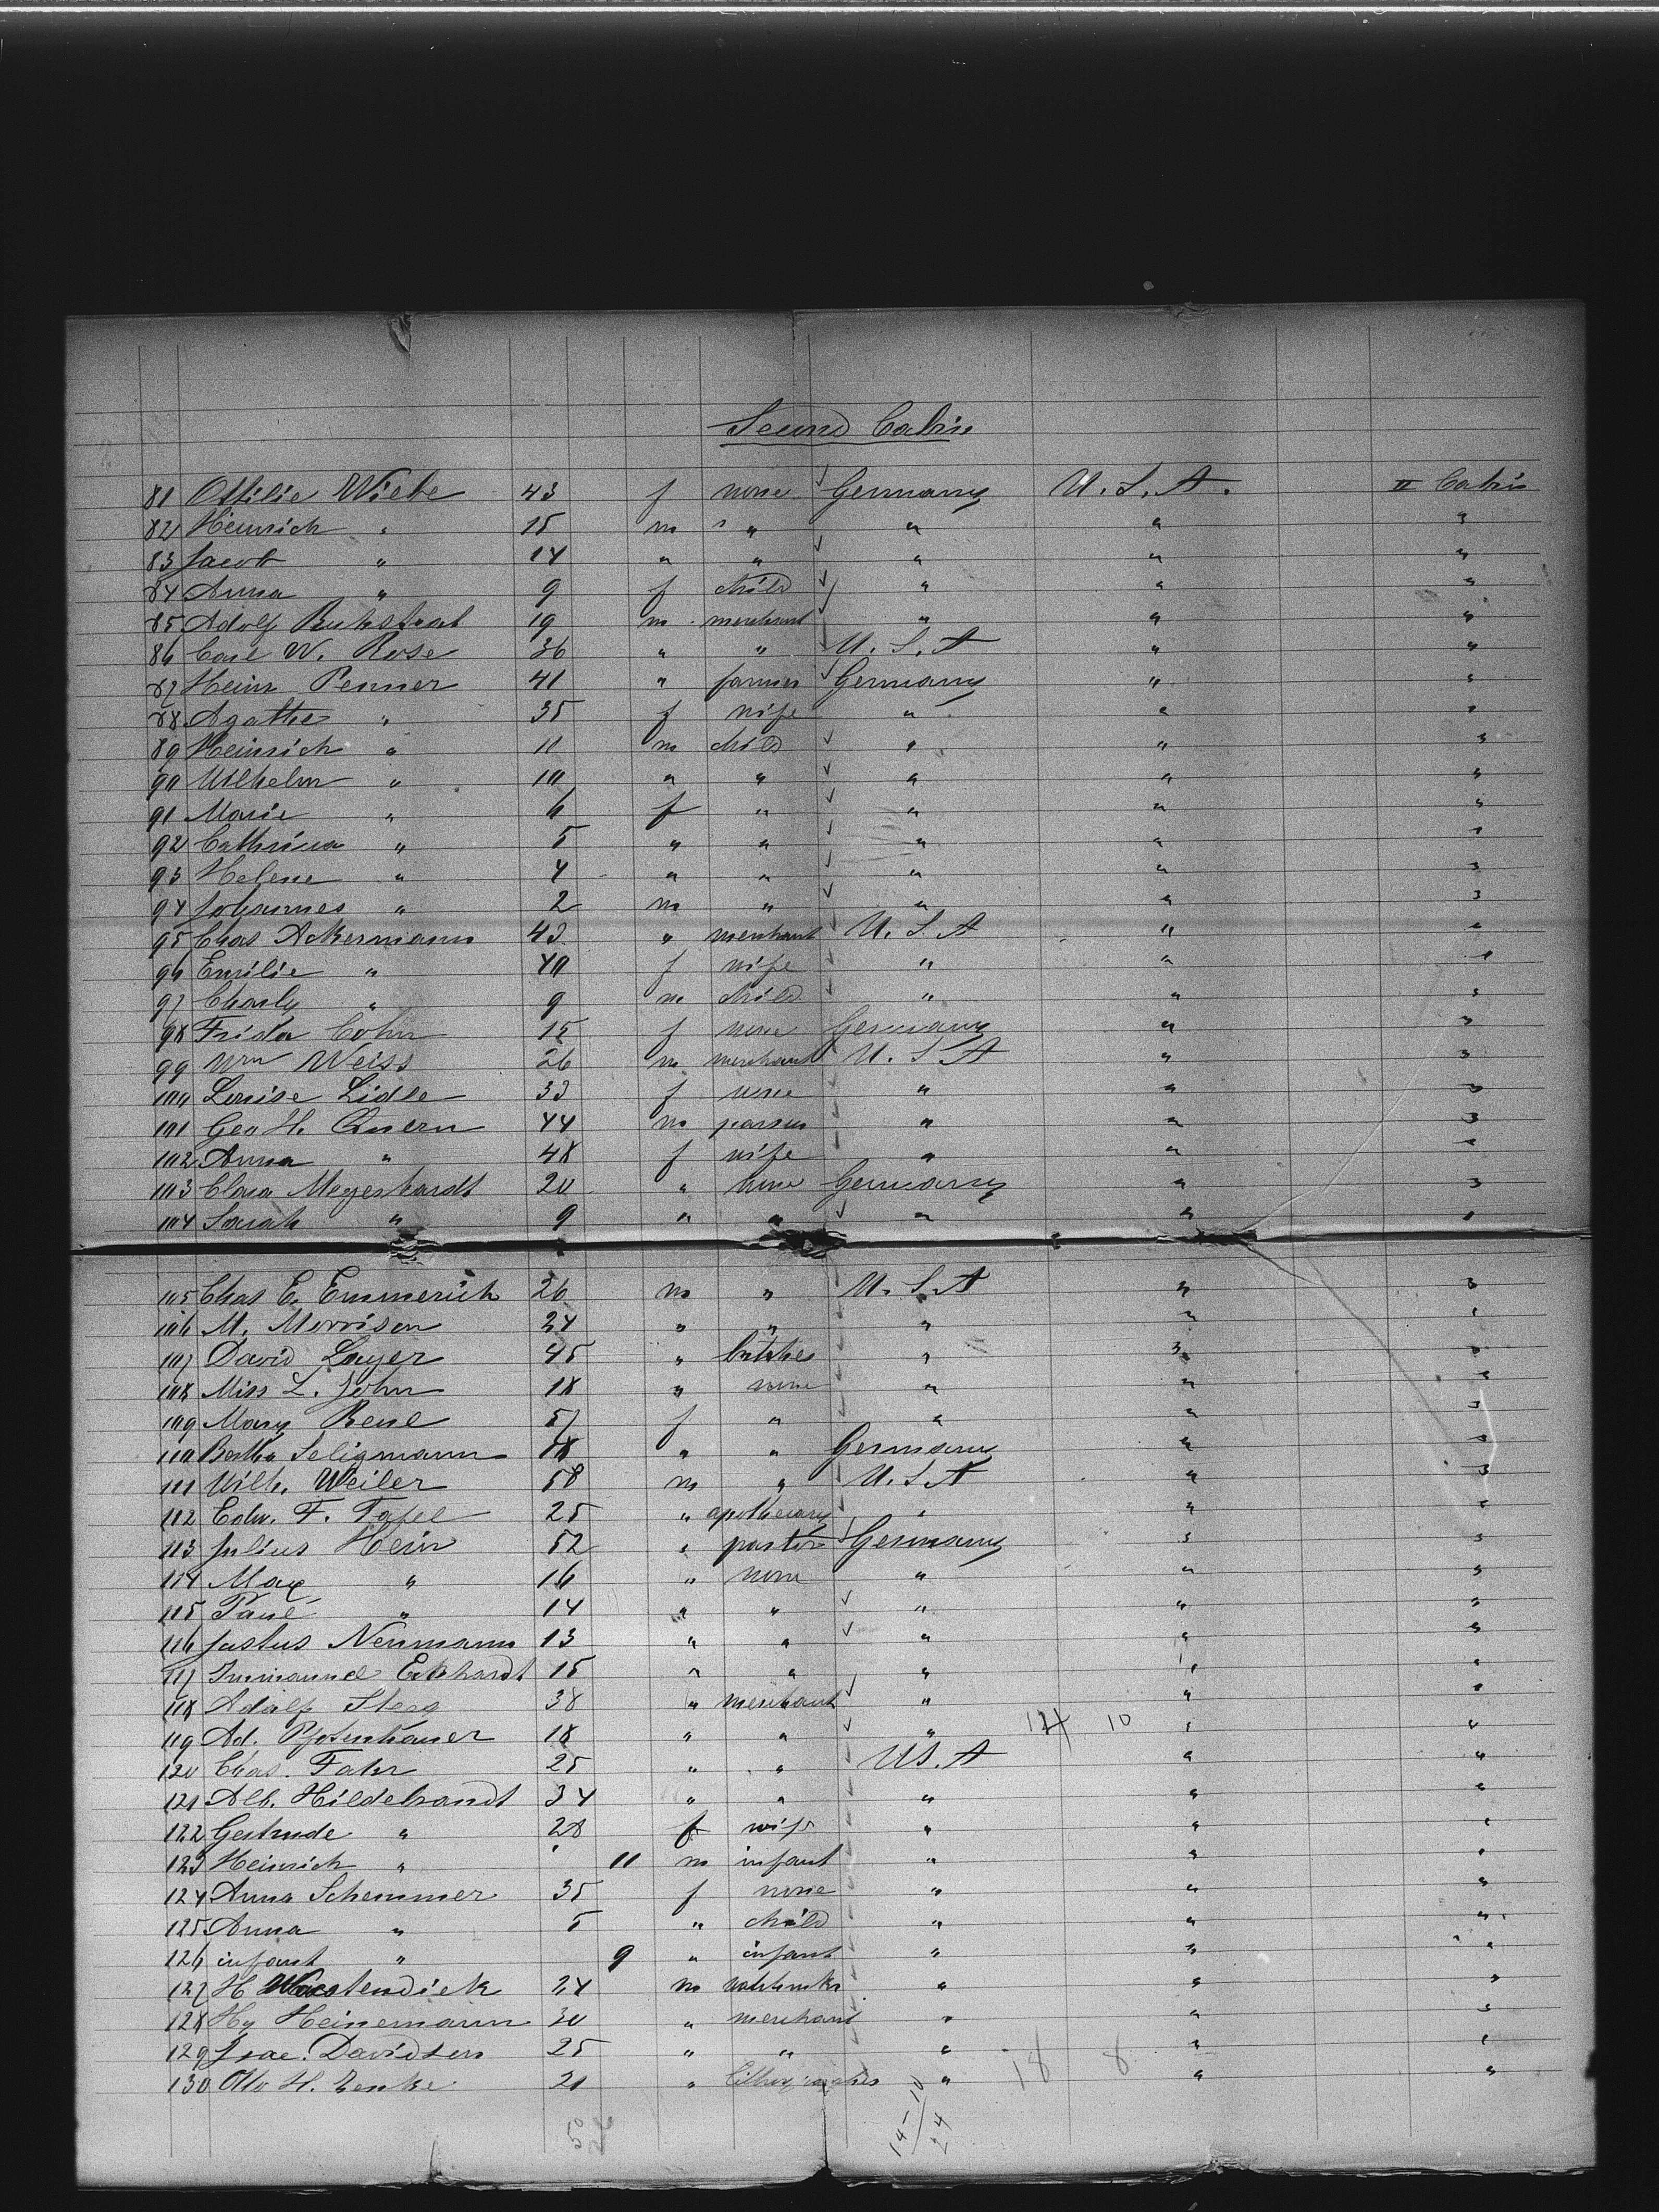 Second Cabin
81 Ottilie Wiebe 43 f none Germany U.S.A. II Cabin
82 Heinrich " 15 m " " " "
83 Jacob " 14 " " " " "
84 Anna " 9 f child " " "
85 Adolf Ruhstrat 19 m merchant " " "
86 Carl W. Rose 36 " " U.S.A " "
87 Heinr Penner 41 " farmer Germany " "
88 Agathe " 35 f wife " " "
89 Heinrich " 11 m child " " "
90 Wilhelm " 10 " " " " "
91 Marie " 6 f " " " "
92 Cathrina " 5 " " " " "
93 Helene " 4 " " " " "
94 Johannes " 2 m " " " "
95 Chas Ackermann 43 " merchant U.S.A " "
96 Emilie " 40 f wife " " "
97 Charly " 9 m child " " "
98 Frida Cohn 15 f none Germany " "
99 Wm Weiss 26 m merchant U.S.A " "
100 Louise Lidle 33 f none " " "
101 Geo H. Quern 44 m parson " " "
102 Anna " 48 f wife " " "
103 Clara Meyerhardt 20 " none Germany " "
104 Sarah " 9 " " " " "
105 Chas E. Emmerich 26 m " U.S.A " "
106 M. Morrison 24 " " " " "
107 David Layer 45 " butcher " " "
108 Miss L. John 18 " none " " "
109 Mary Reul 57 f " " " "
110 Bertha Seligmann 18 " " Germany " "
111 Wilh. Weiler 58 m " U.S.A " "
112 Edw. F. Tafel 25 " apothecary " " "
113 Julius Hein 52 " pastor Germany " "
114 Max " 16 " none " " "
115 Paul " 14 " " " " "
116 Justus Neumann 13 " " " " "
117 Immanuel Eckhardt 15 " " " " "
118 Adolf Steeg 38 " merchant " " "
119 Ad. Pfotenhauer 18 " " " 10 " "
120 Chas. Fahr 25 " " US.A " "
121 Alb. Hildebrandt 34 " " " " "
122 Gertrude " 28 f wife " " "
123 Heinrich " 11 m infant " " "
124 Anna Schemmer 35 f none " " "
125 Anna " 5 " child " " "
126 infant " 9 " infant " " "
127 H Wostendiek 24 m " " "
128 Hy Heinemann 30 " merchant " " "
129 Isac. Davidson 25 " " " " "
130 Otto H. Zenke 21 " " 18 8 " "
50 14-10
26 24